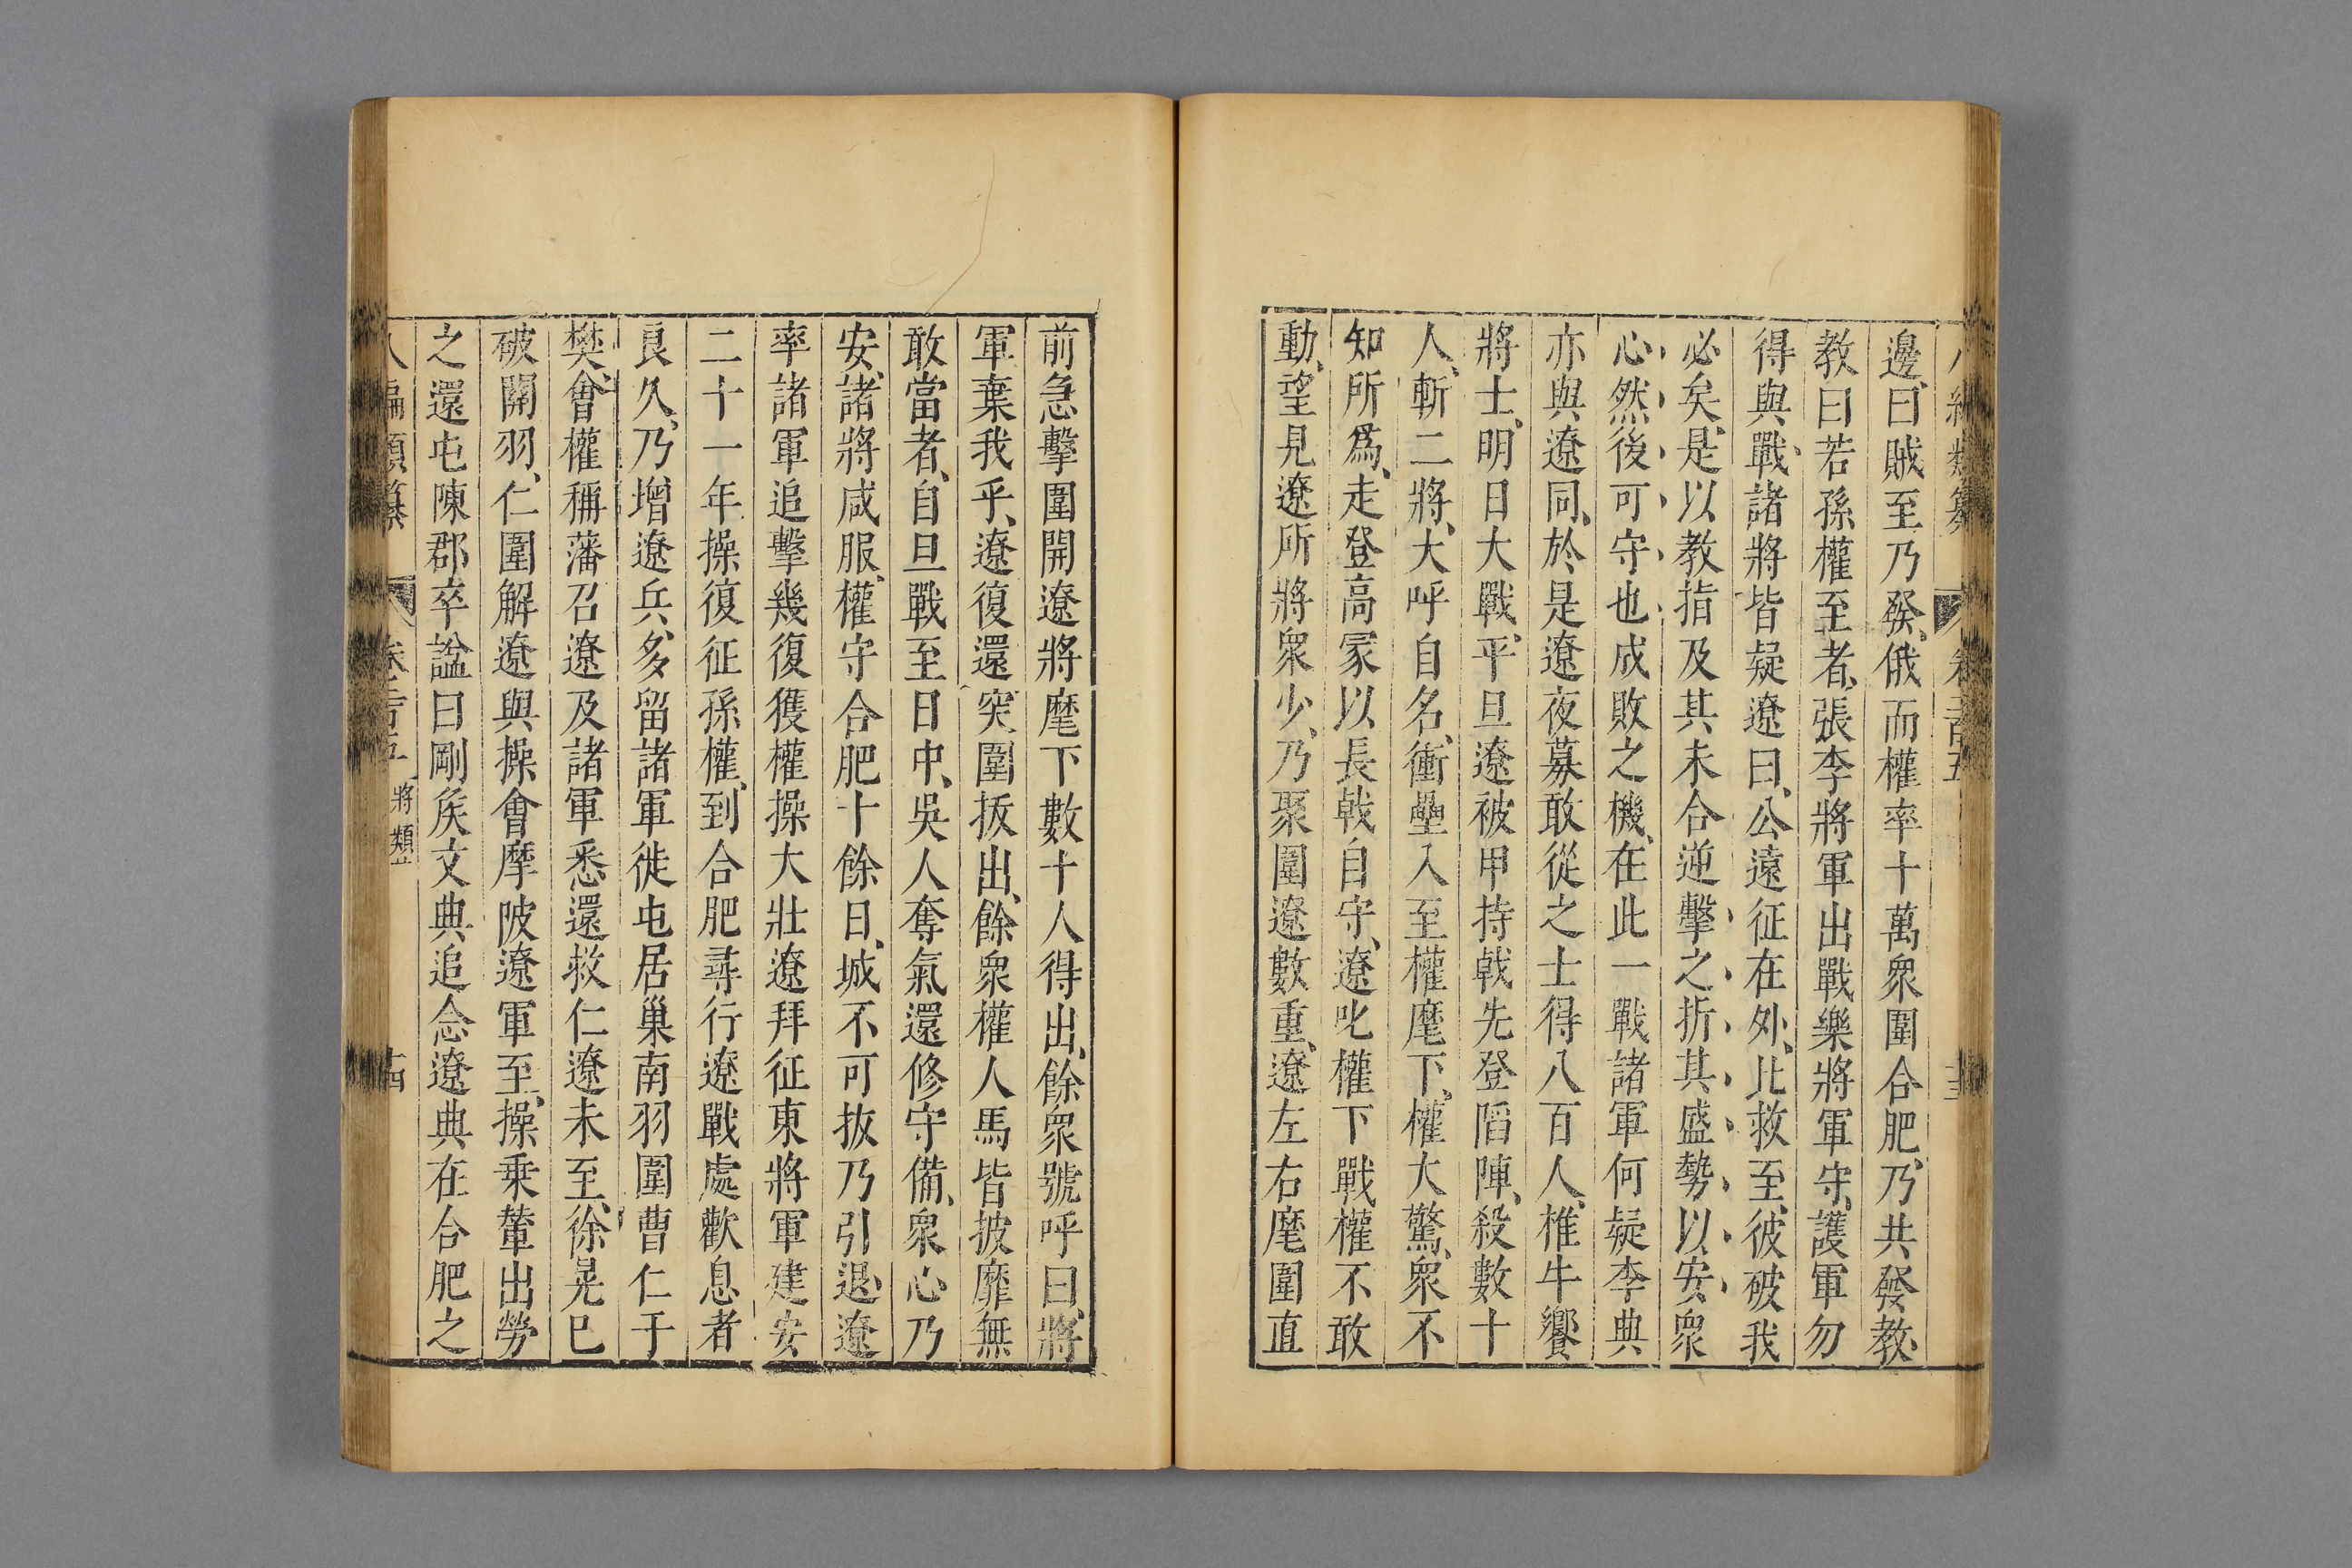 邊、曰賊至乃發、俄而權率十萬衆圍合肥、乃共發教、
教曰若孫權至者、張李將軍出戰樂將軍守、護軍勿
得與戰、諸將皆疑遼曰、公遠征在外、比救至、彼破我
必矣、是以教指及其未合逆擊之、折其盛勢、以安衆
心、然後可守也成敗之機、在此一戰諸軍何疑李典
亦與遼同、於是遼夜募敢從之士得八百人、椎牛饗
將士、明日大戰、平旦遼被甲持戟先登陷陣、殺數十
人、斬二將、大呼自名、衝壘入至權麾下、權大驚、衆不
知所爲、走登高冢以長戟自守、遼叱權下戰權不敢
動、望見遼所將衆少、乃聚圍遼數重、遼左右麾圍直
前急擊圍開遼將麾下數十人得出、餘衆號呼曰、將
軍棄我乎、遼復還突圍扳出、餘衆權人馬皆披靡無
敢當者、自旦戰至日中、吳人奪氣還修守備、衆心乃
安、諸將咸服、權守合肥十餘日、城不可拔乃引退、遼
率諸軍追擊幾復獲權操大壯遼拜征東將軍建安
二十一年操復征孫權、到合肥尋行遼戰處歎息者
良久、乃增遼兵、多留諸軍徙屯居巢南羽圍曹仁于
樊、會權稱藩召遼及諸軍悉還救仁遼未至、徐晃巳
破關羽、仁圍解遼與操會摩陂遼軍至、操乗輦出勞
之還屯陳郡卒諡曰剛矦文典追念遼典在合肥之
編類纂 將類